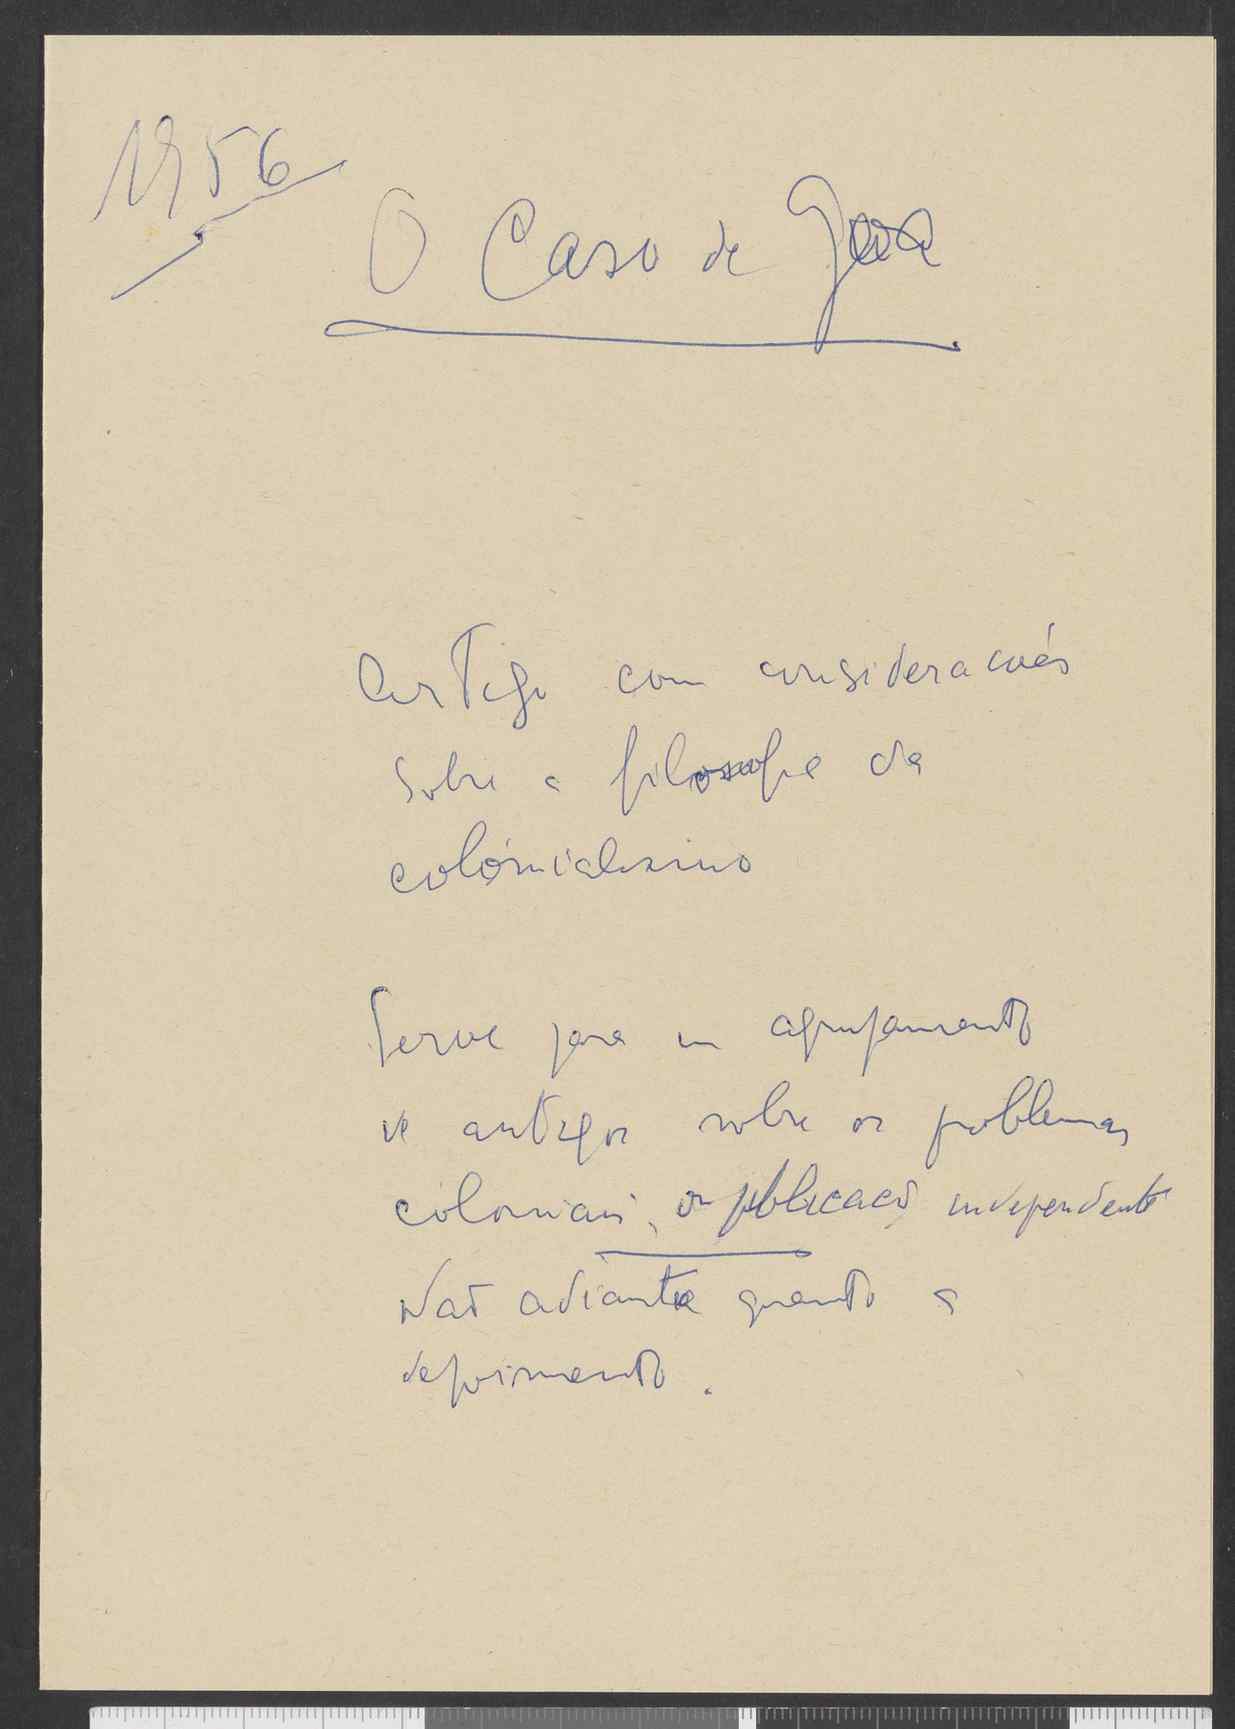 1956
O Caso de Goa
Artigo com consideracoés
sobre a filosofia da
colónialismo
Serve para um agrupamento
de artigos sobre os problemas
coloniais, ou publicacaõ independente
Naõ adianta quanto a
depoimento.